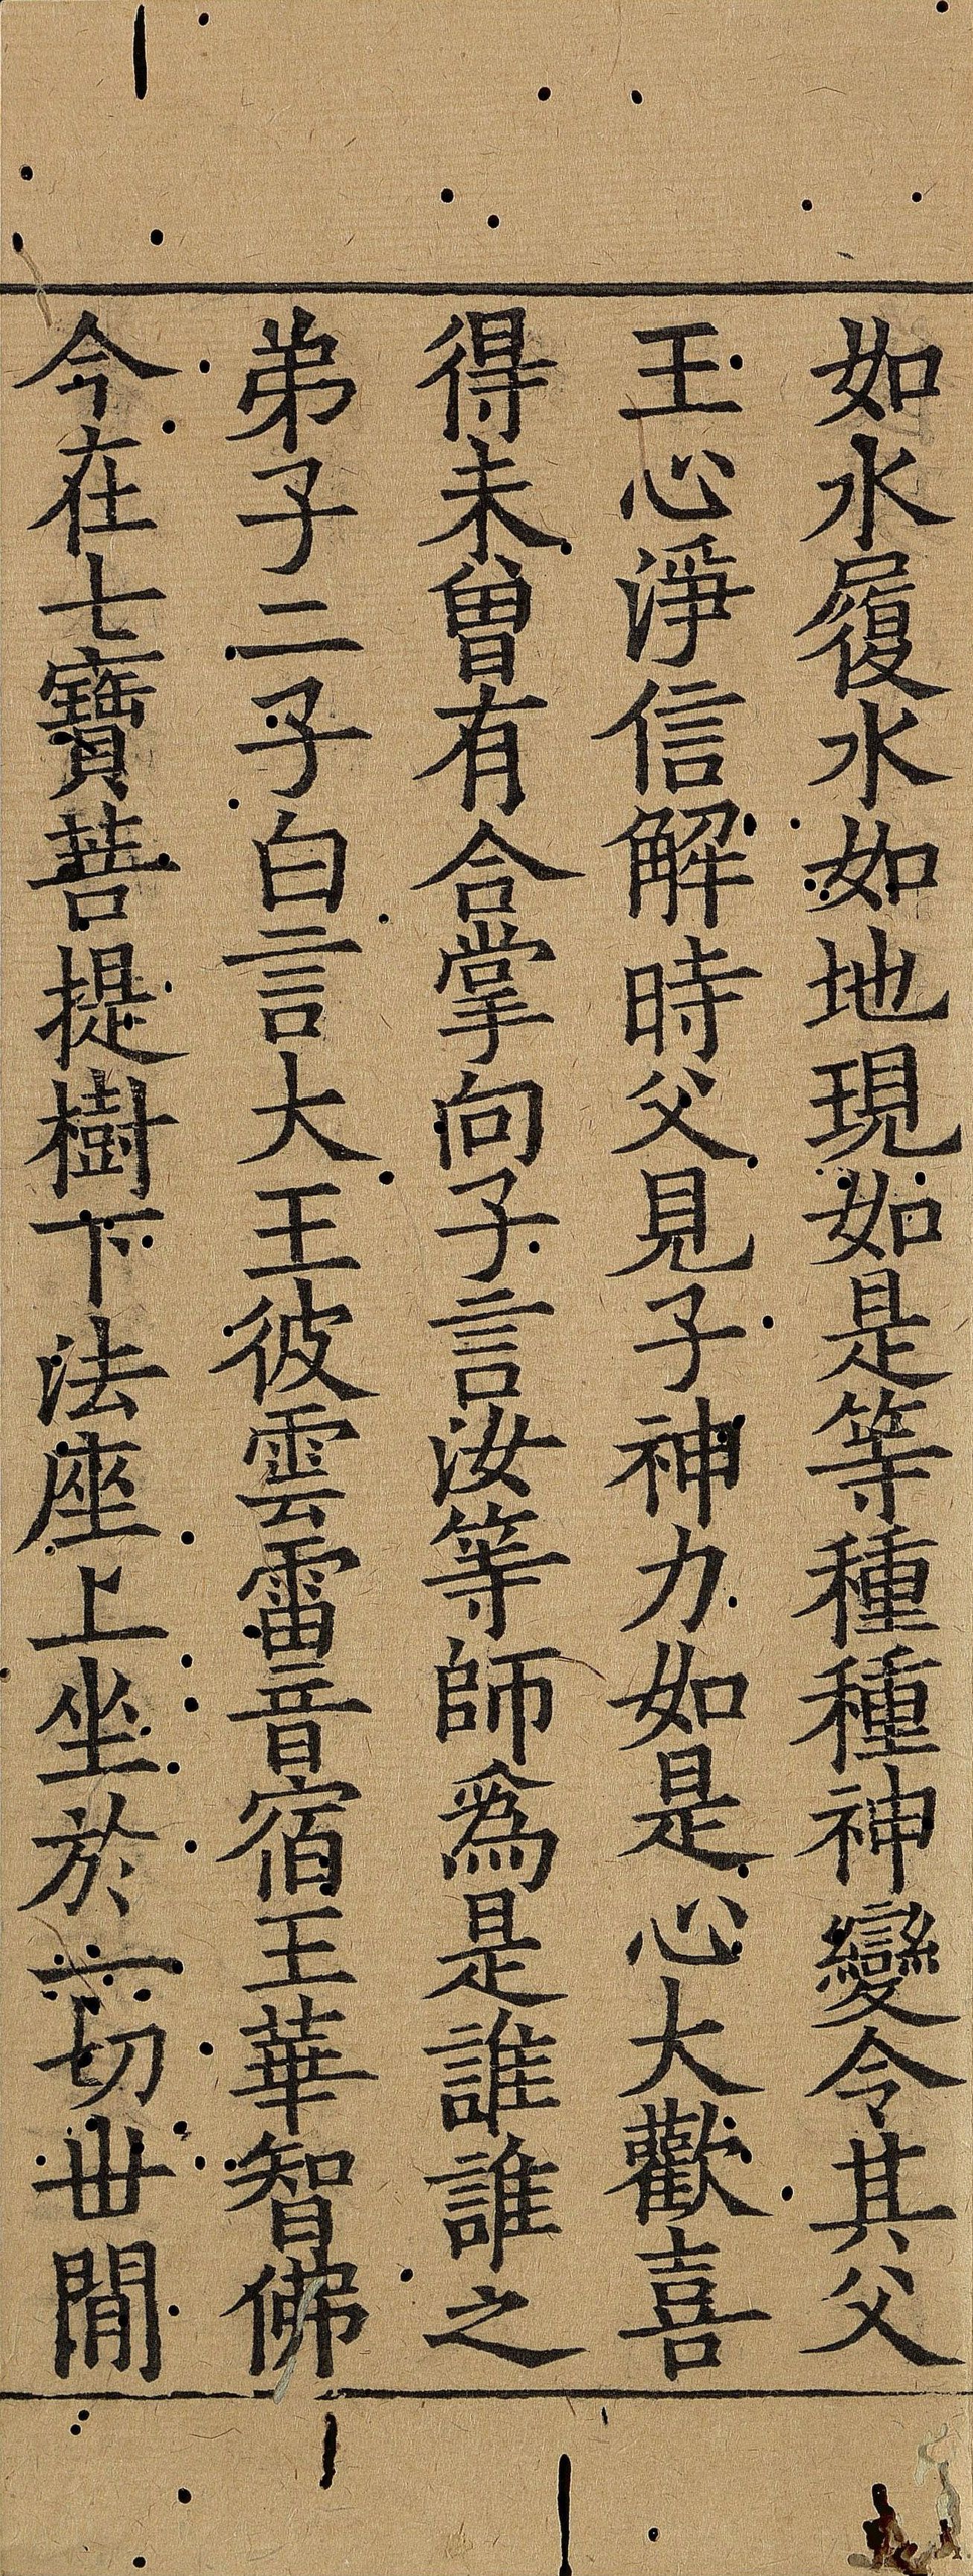 如水履水如地現如是等種種神變令其父
王心淨信解時父見子神力如是心大歡喜
得未曾有合掌向子言汝等師爲是誰誰之
弟子二子白言大王彼雲雷音宿王華智佛
今在七寶菩提樹下法座上坐於一切世間